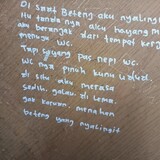 Di saat Beteng aku nyalingit
Itu tanda nya aku hayang M
aku berangkat dari tempat kerja
menuju WC.
Tapi sayang pas nepi WC.
WC nya pinuh kunu
di situ aku merasa
sedih. galau. di lema.
gak karuan. menahan
beteng yang nyalingit